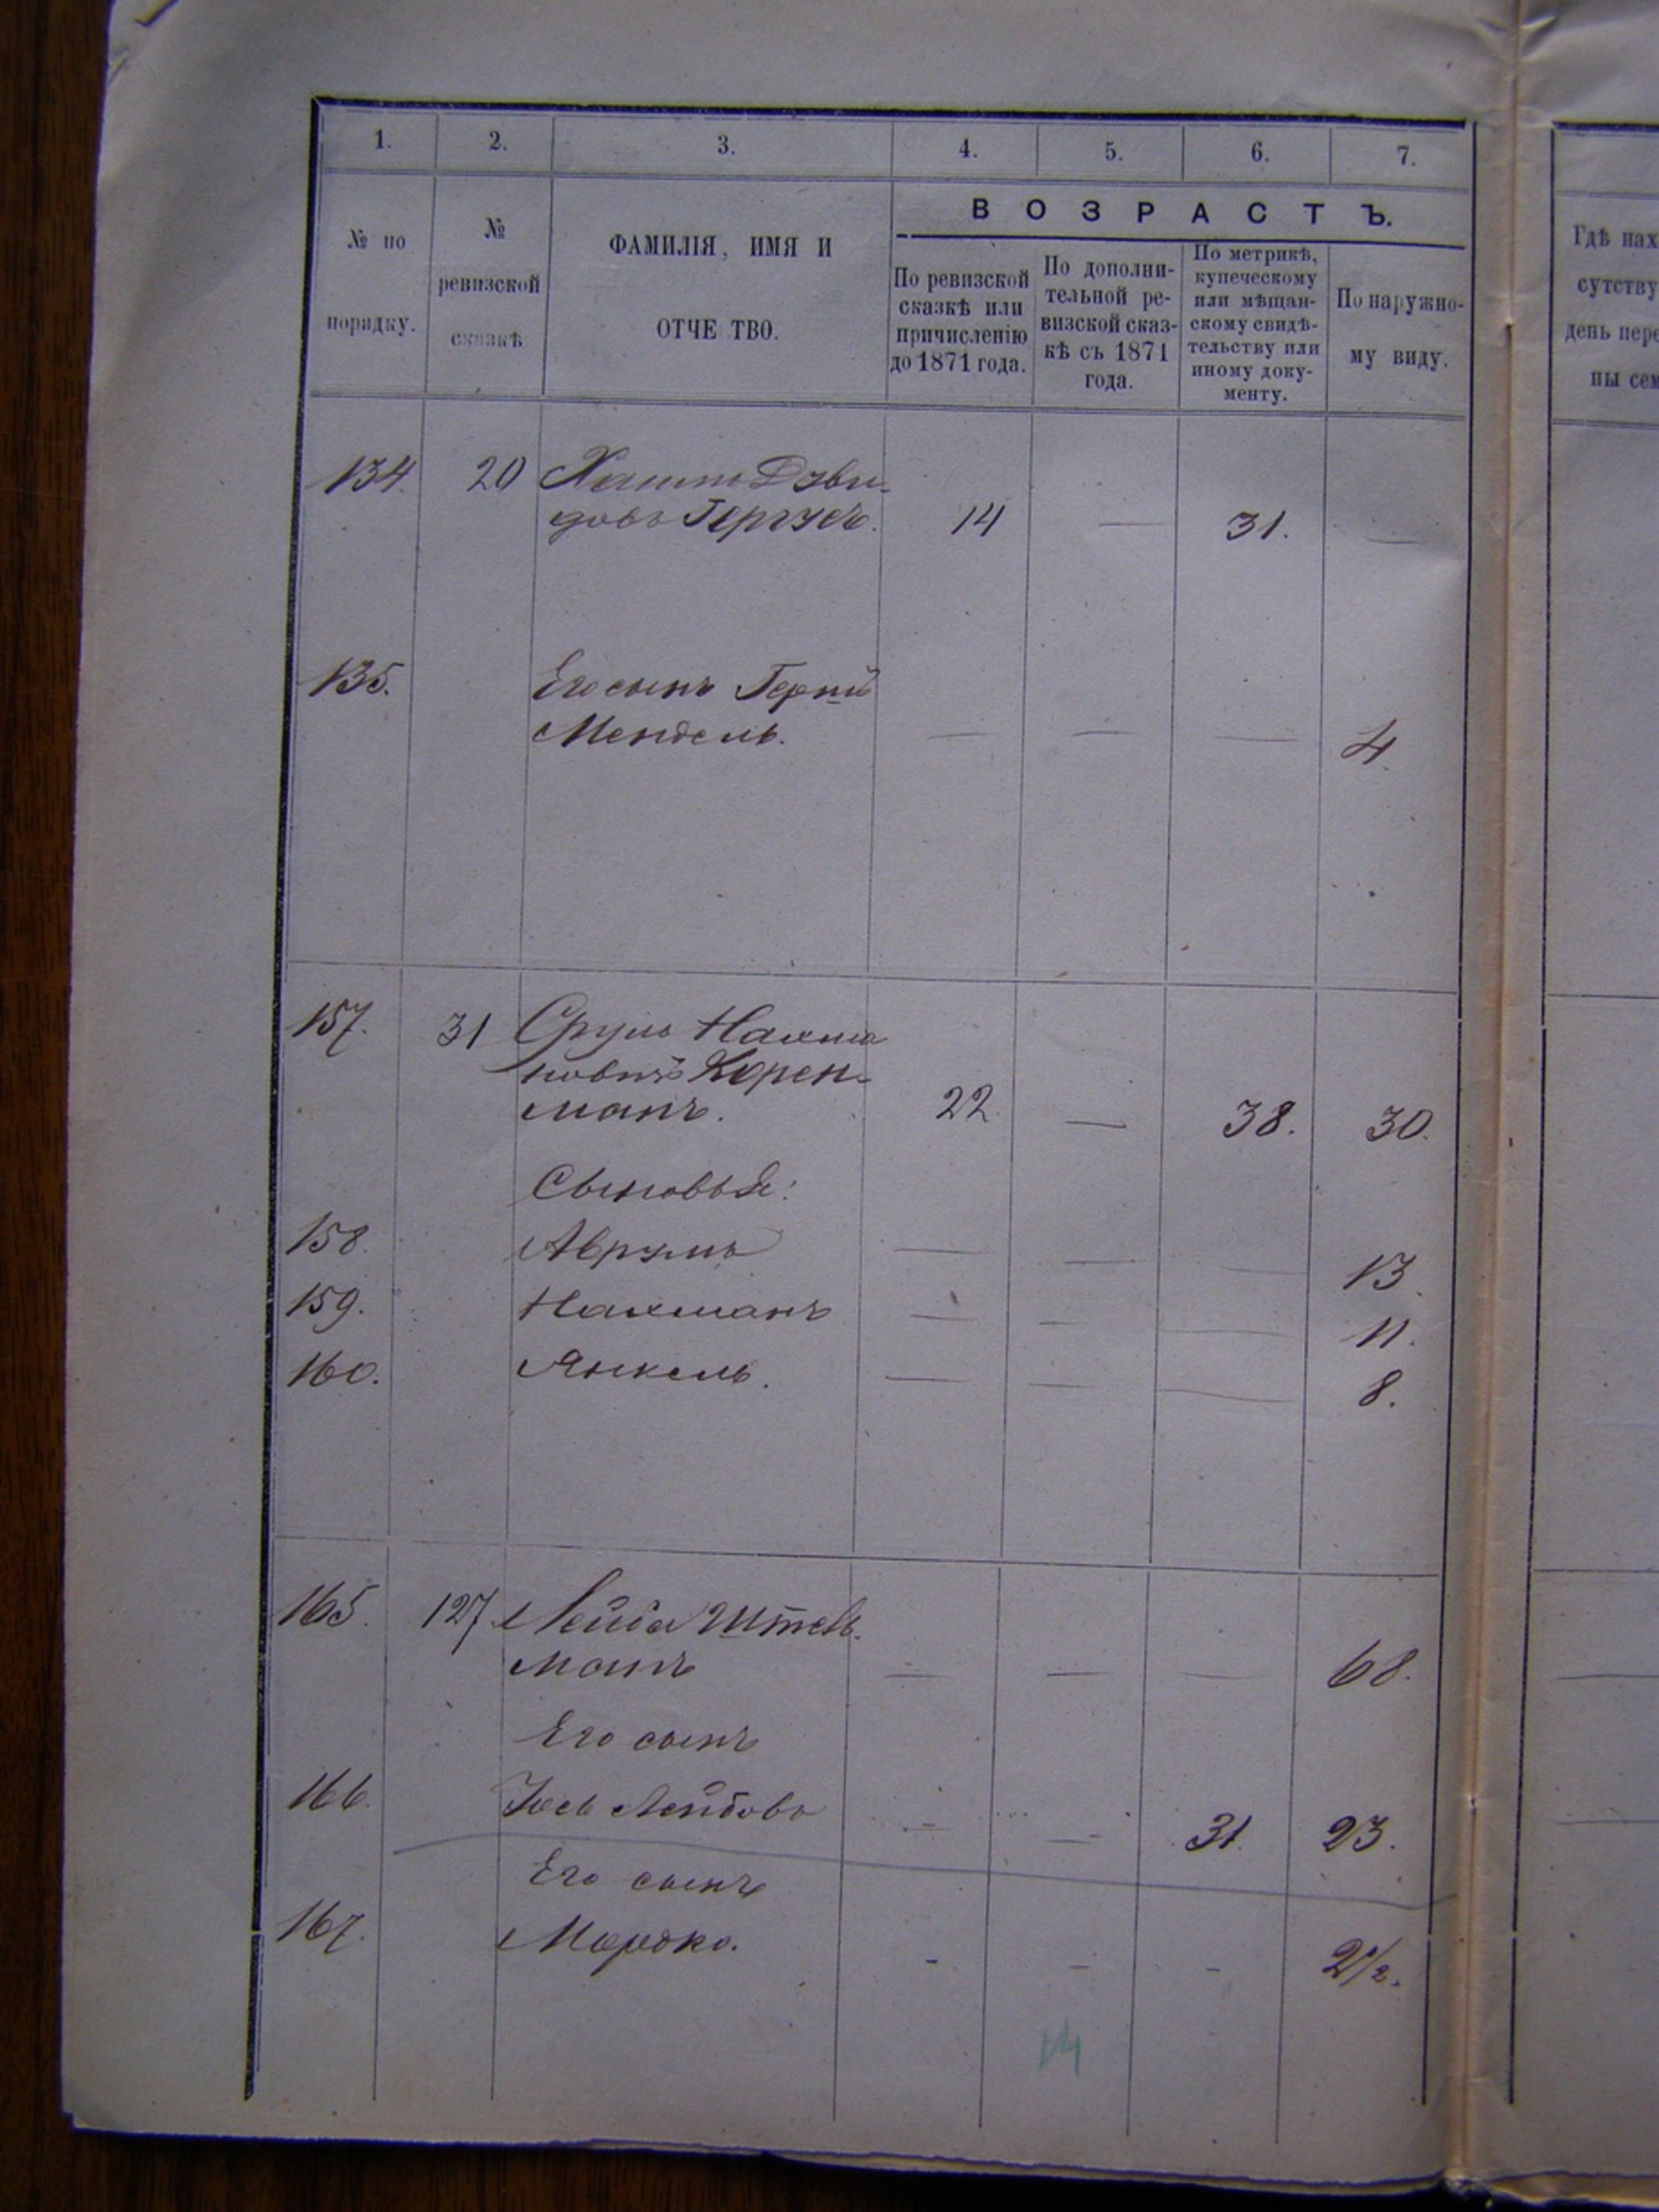 1. 2. 3. 4. 5. 6. 7.
№ по порядку.
№ ревизской сказкѣ
ФАМИЛІЯ, ИМЯ И
ОТЧЕ ТВО.
ВОЗРАСТЪ.
По ревизской
сказкѣ или
причисленію
до 1871 года.
По дополни-
тельной ре-
визской сказ-
кѣ съ 1871
года.
По метрикѣ,
купеческому
или мѣщан-
скому свидѣ-
тельству или
иному доку-
менту.
По наружно-
му виду.
Гдѣ нах
сутству
день пере
ны сем
134. 20
14 — 31. —
135. Его сынъ
Мендель. — — — 4.
157. 31 Сруль Нахма
новичъ Корен-
манъ. 22 — 38. 30.
Сыновья:
158. Аврумъ — — — 13.
159. Нахманъ — — — 11.
160. Янкель. — — — 8.
165. 127 Лейба Штель-
манъ — — — 68.
Его сынъ
166. Іось Лейбовъ — — 31. 23.
Его сынъ
167. Мордко. - - - 2 1/2.
14